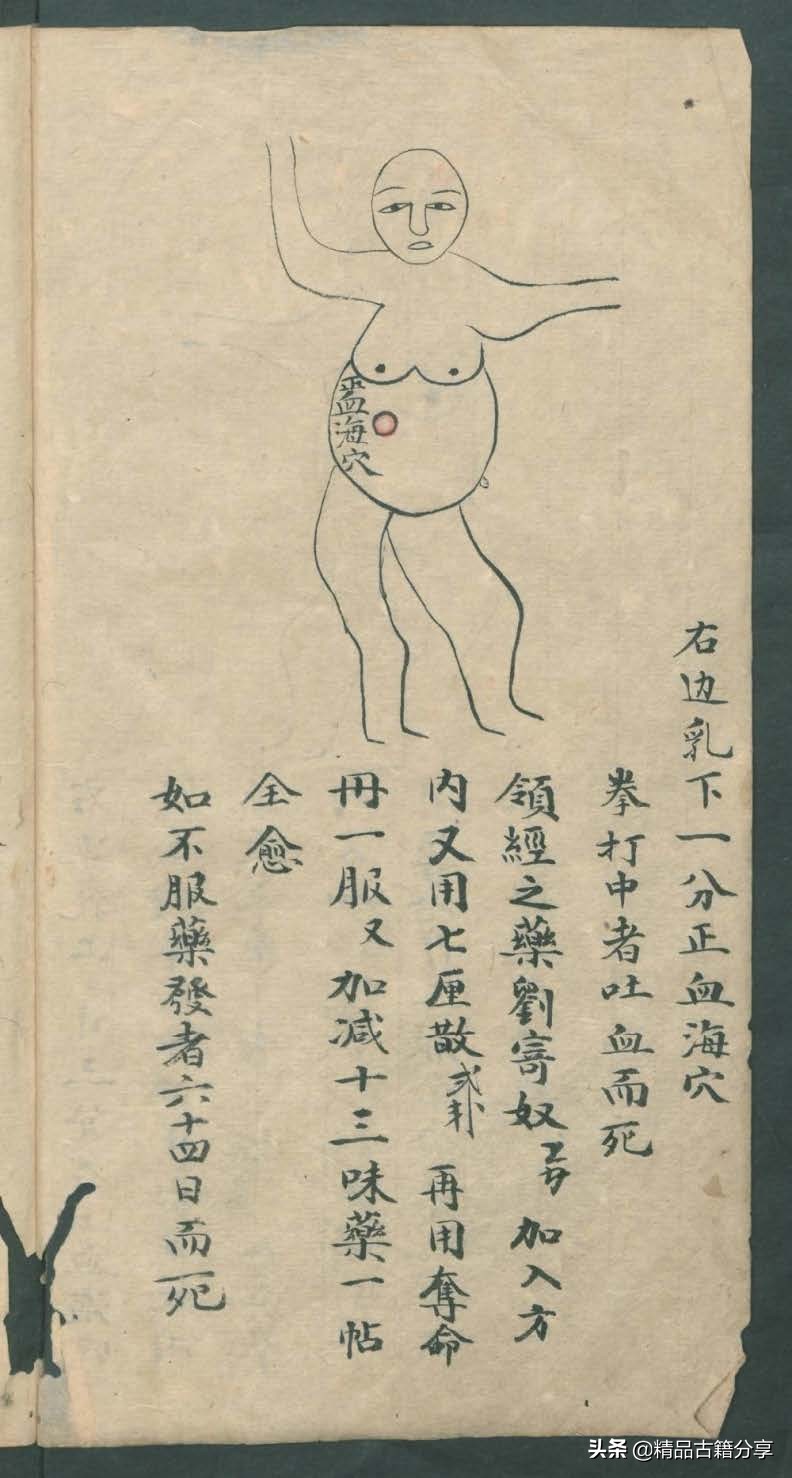 海穴
右边乳下一分正血海穴
拳打中者吐血而死
領經之藥劉寄奴 加入方
内又用七厘散 再用奪命
冊一服又加减十三味藥一帖
全愈
如不服藥發者六十四日而死
头条 @精品古籍分享